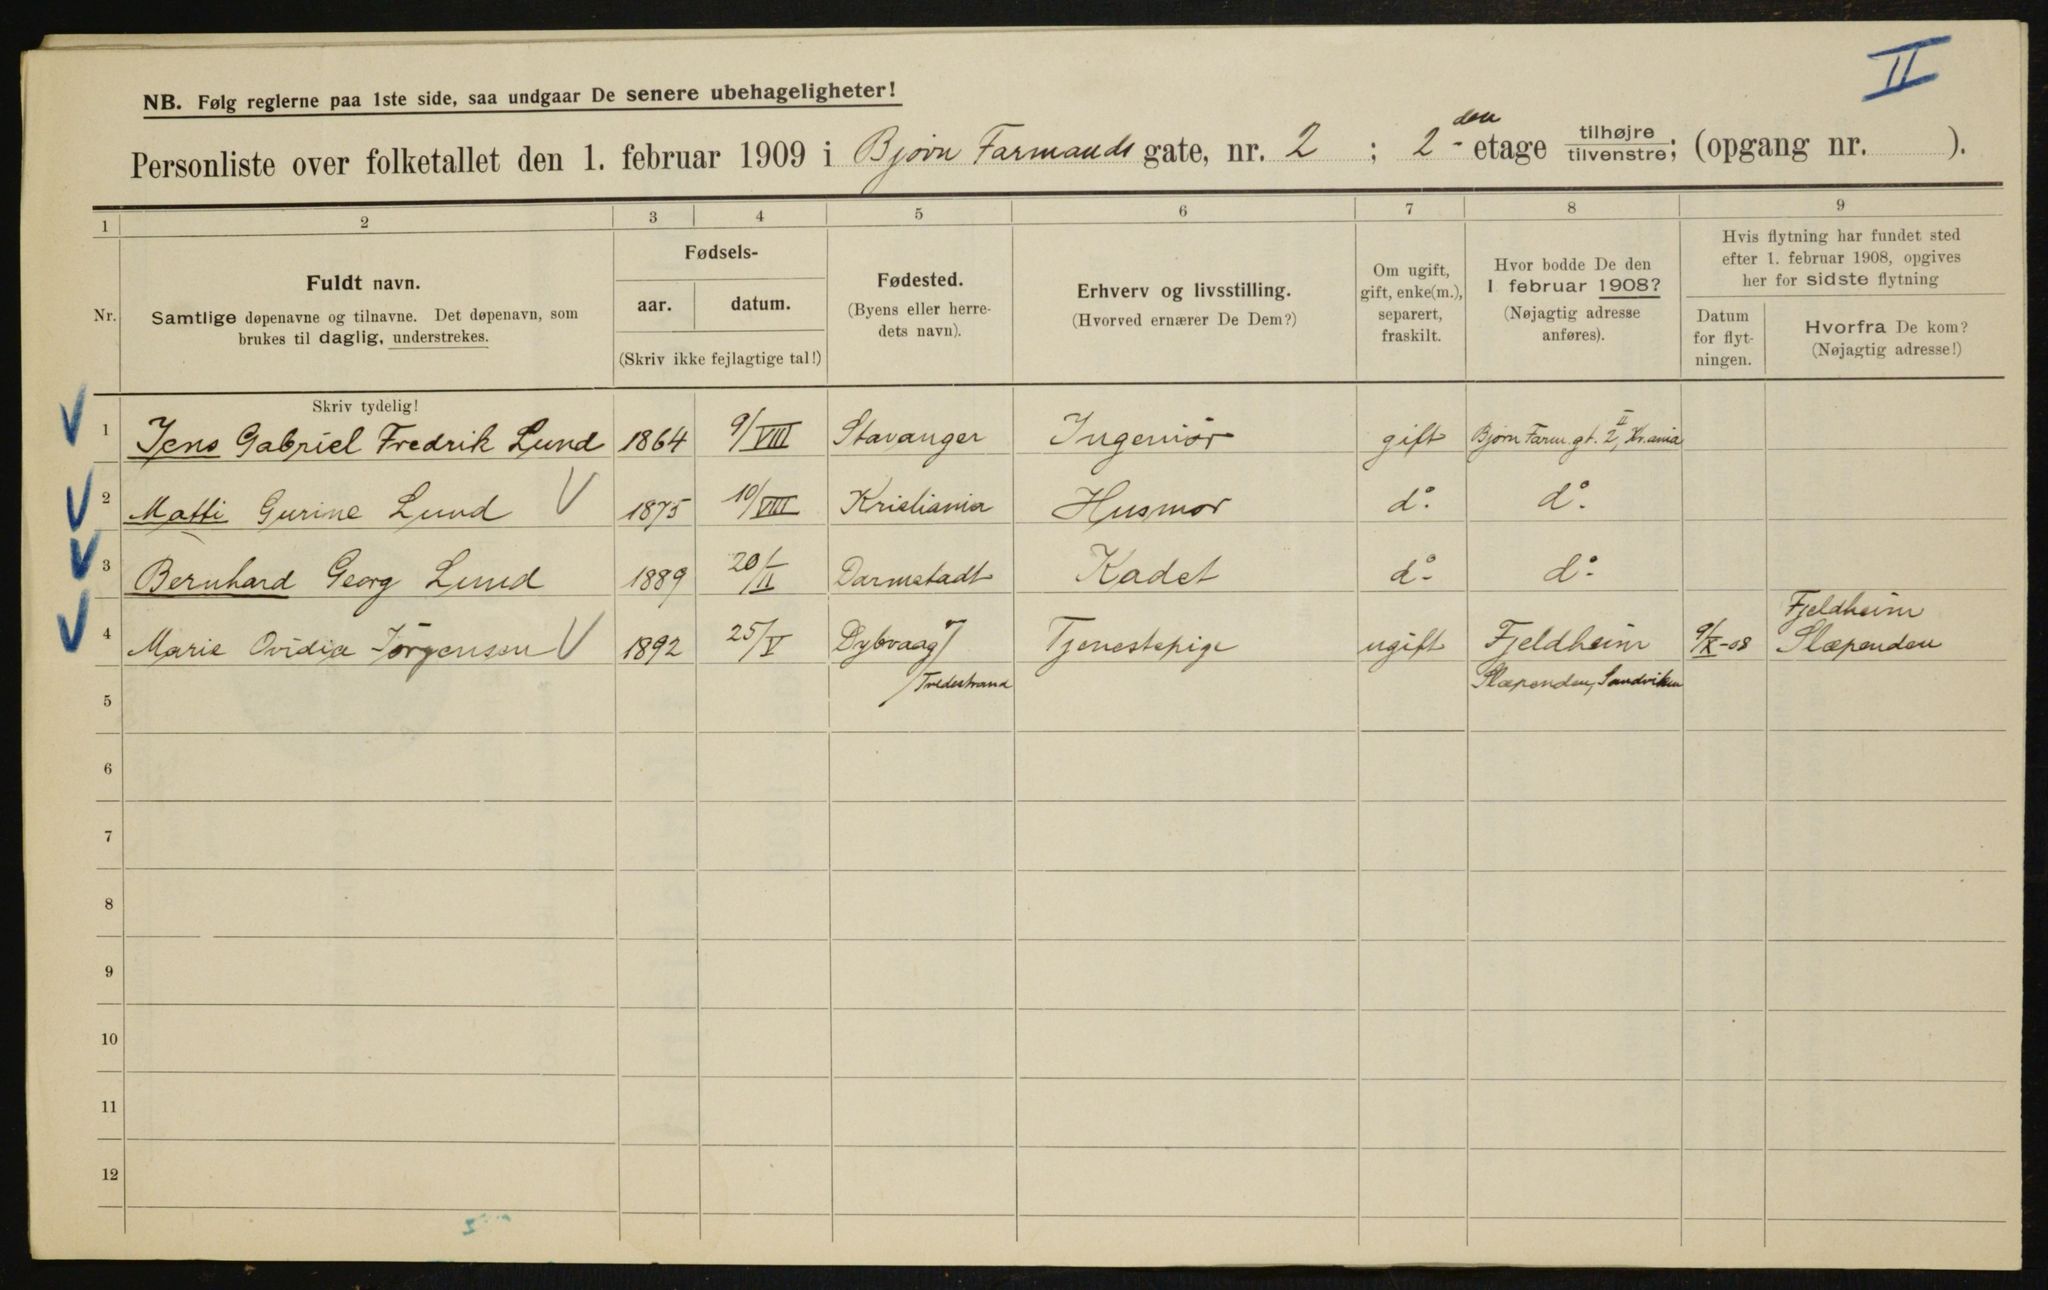 II
NB. Følg reglerne paa 1ste side, saa undgaar De senere ubehageligheter!
Personliste over folketallet den 1. februar 1909 i Bjørn Farmands gate, nr. 2 ; 2-den etage tilhøjre/tilvenstre; (opgang nr. ).
1 2 3 4 5 6 7 8 9
Nr.
Fuldt navn.
Samtlige døpenavne og tilnavne. Det døpenavn, som
brukes til daglig, understrekes.
Fødsels-
aar. datum.
(Skriv ikke fejlagtige tal!)
Fødested.
(Byens eller herre-
dets navn).
Erhverv og livsstilling.
(Hvorved ernærer De Dem?)
Om ugift,
gift, enke(m.),
separert,
fraskilt.
Hvor bodde De den
1 februar 1908?
(Nøjagtig adresse
anføres).
Hvis flytning har fundet sted
efter 1. februar 1908, opgives
her for sidste flytning
Datum
for flyt-
ningen.
Hvorfra De kom?
(Nøjagtig adresse!)
Skriv tydelig!
1 Jens Gabriel Fredrik Lund 1864 9/VIII Stavanger Ingeniør gift Bjørn Farm. gt. 2 II, Kr.ania
2 Matti Gurine Lund 1875 10/VIII Kristiania Husmor do. do.
3 Bernhard Georg Lund 1889 20/II Darmstadt Kadet do- do-
4 Marie Ovidia Jörgensen 1892 25/V Dybvaag Tjenestepige ugift Fjeldheim 9/X-08 Fjeldheim
Slæpenden
5 /Tvedestrand Slæpenden, Sandviken
6
7
8
9
10
11
12